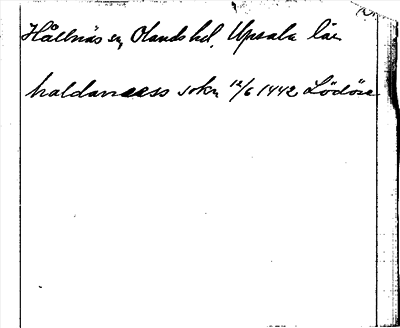 Hållnäs sn, Olands hd. Upsala län
haldanæss sokn 12/6 1442 Lödöse